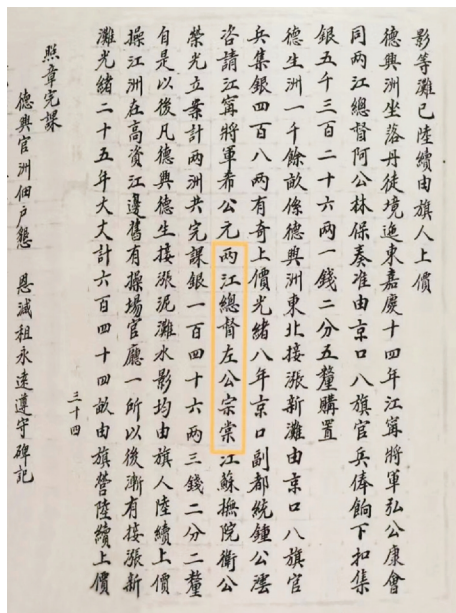 影等灘已陸續由旗人上價
德興洲坐落丹徒境迤東嘉慶十四年江寧將軍弘公康會
同兩江總督阿公林保奏准由京口八旗官兵俸餉下扣集
銀五千三百二十六兩一錢二分五釐購置
德生洲一千餘畝係德興洲東北接漲新灘由京口八旗官
兵集銀四百八兩有奇上價光緒八年京口副都統鍾公濡
咨請江寧將軍希公元兩江總督左公宗棠江蘇撫院衛公
榮光立案計兩洲共完課銀一百四十六兩三錢二分二釐
自是以後凡德興德生接漲泥灘水影均由旗人陸續上價
操江洲在高資江邊舊有操場官廳一所以後漸有接漲新
灘光緒二十五年大丈計六百四十四畝由旗營陸續上價
三十四
照章完課
德興官洲佃戶懇 恩減租永遠遵守碑記